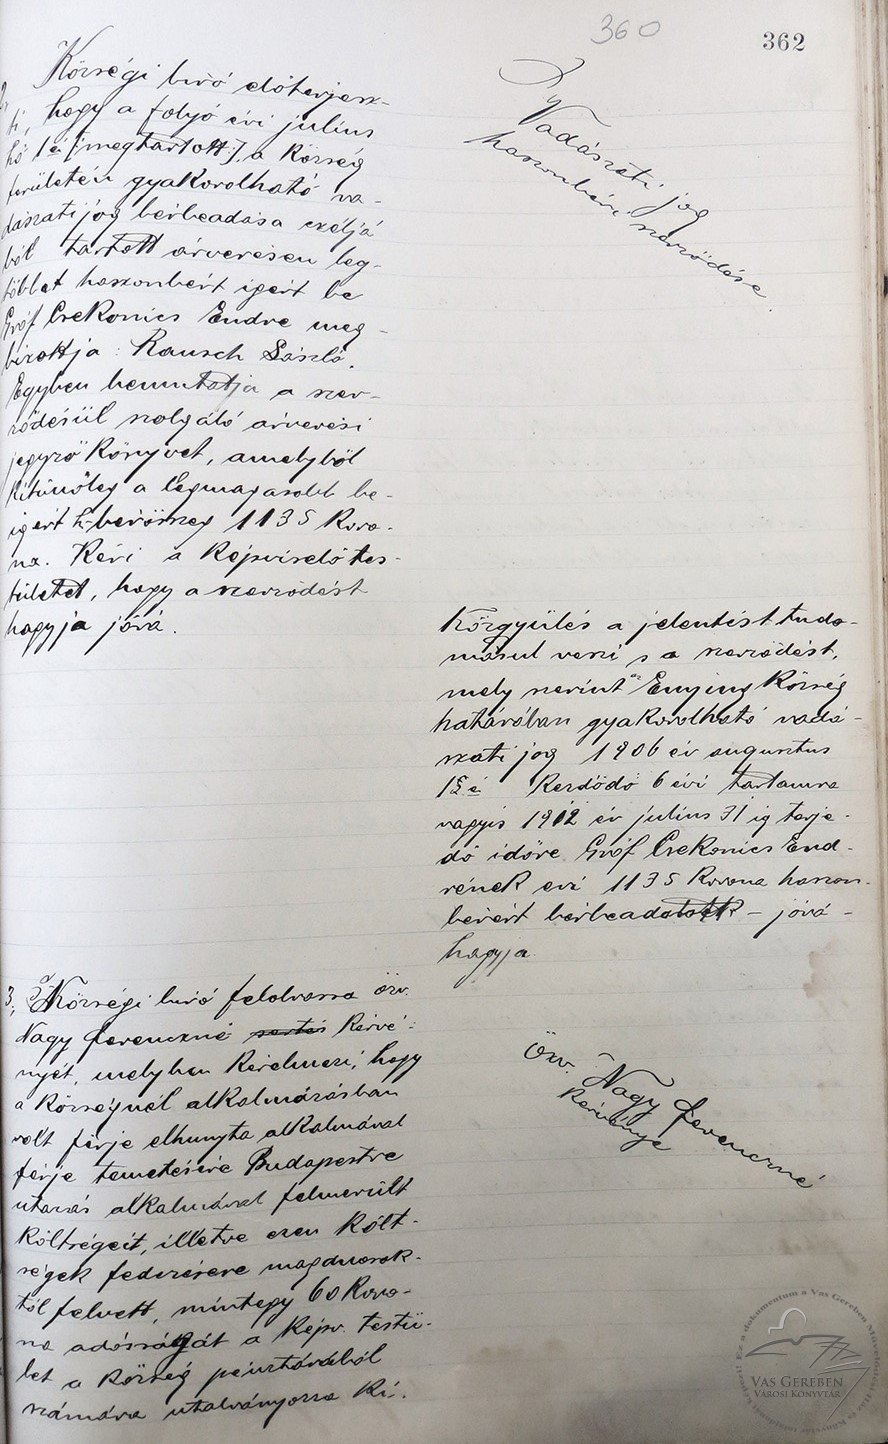 360
362
2,
Községi biró előterjesz-
ti, hogy a folyó évi julius
hó 1 én [megtartott], a község
területén gyakorolható va-
dászati jog bérbeadása céljá
ból tartott árverésen leg-
többet haszonbért igért be
Gróf Csekonics Endre meg-
bizottja: Rausch László.
Egyben bemutatja a szer-
ződésül szolgáló árverési
jegyző könyvet, amelyből
kitünőleg a legmagasabb be-
igért h-bérösszeg 1135 koro-
na. Kéri a képviselő tes-
tületet, hogy a szerződést
hagyja jóvá.
Vadászati jog
haszonbéri szerződése.
Közgyülés a jelentést tudo-
másul veszi s a szerződést,
mely szerint az Enying község
határában gyakorolható vadá-
szati jog 1906 év augusztus
1 én kezdődő 6 évi tartamra
vagyis 1912 év julius 31 ig terje-
dő időre Gróf Csekonics End-
rének évi 1135 korona haszon-
bérért bérbeadatott – jóvá-
hagyja.
3., Községi biró felolvassa özv.
Nagy Ferenczné kérvé-
nyét, melyben kérelmezi, hogy
a községnél alkalmazásban
volt férje elhunyta alkalmával
férje temetésére Budapestre
utazás alkalmával felmerült
költségeit, illetve ezen költ-
ségek fedezésére magánosok-
tól felvett, mintegy 60 koro-
na adósságát a képv. testü-
let a község pénztárából
számára utalványozza ki.
Özv. Nagy Ferenczné
kérvénye
VAS GEREBEN
VÁROSI KÖNYVTÁR